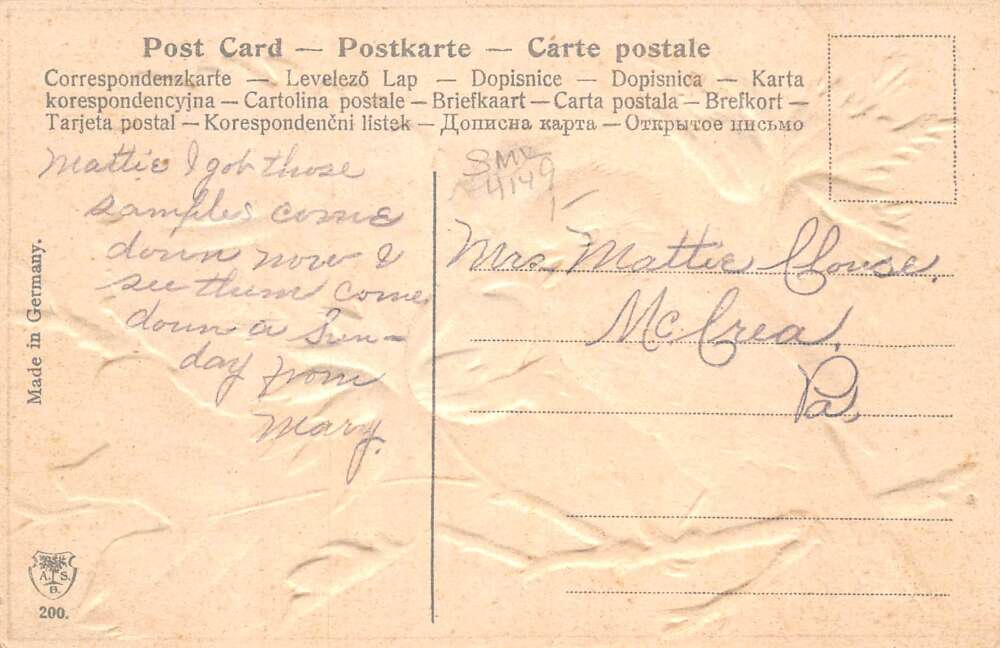 Post Card — Postkarte — Carte postale
Correspondenzkarte — Levelező Lap — Dopisnice — Dopisnica — Karta
korespondencyjna — Cartolina postale — Briefkaart — Carta postala — Brefkort —
Tarjeta postal — Korespondenčni listek — Дописна карта — Открытое письмо
Mattie I got those
samples come
down now I
see them come
down a Sun-
day from
Mary.
4149
1-
Mrs. Mattie Clouse,
McCrea,
Pa,
Made in Germany.
A. S.
B.
200.